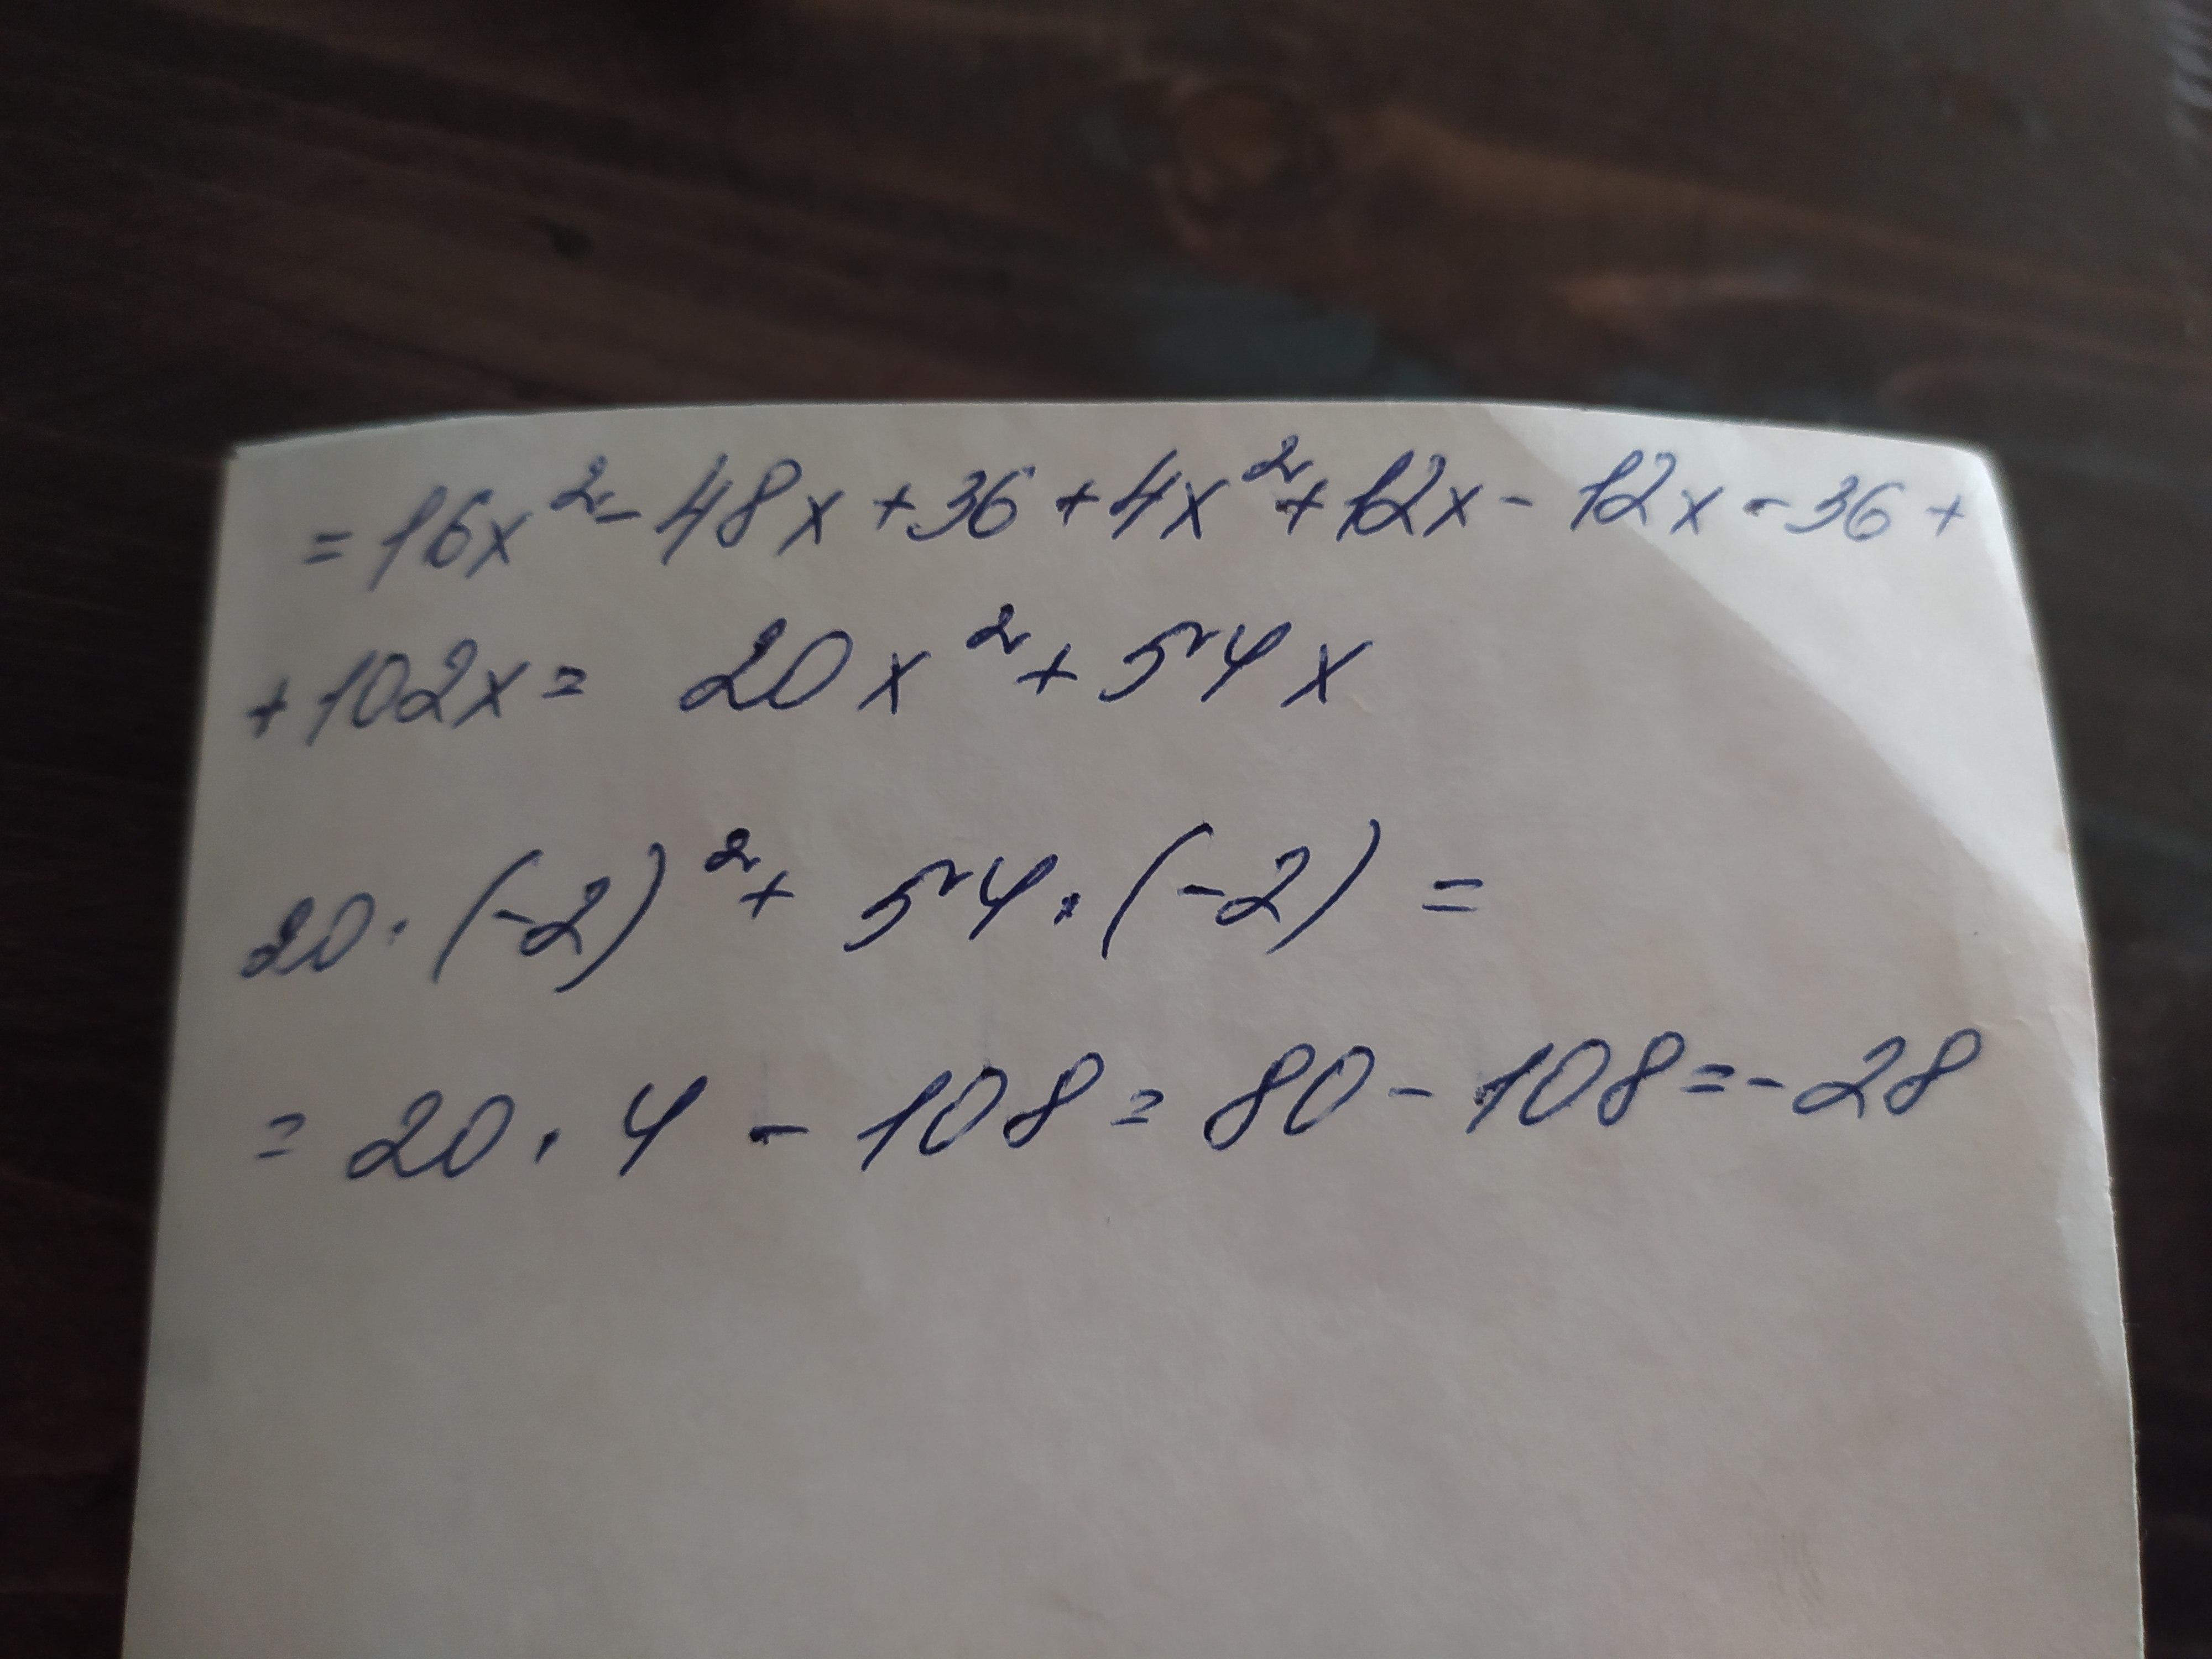 = 16x² - 48x + 36 + 4x² + 12x - 12x - 36 +
+ 102x = 20x² + 54x
20 · (-2)² + 54 · (-2) =
= 20 · 4 - 108 = 80 - 108 = - 28